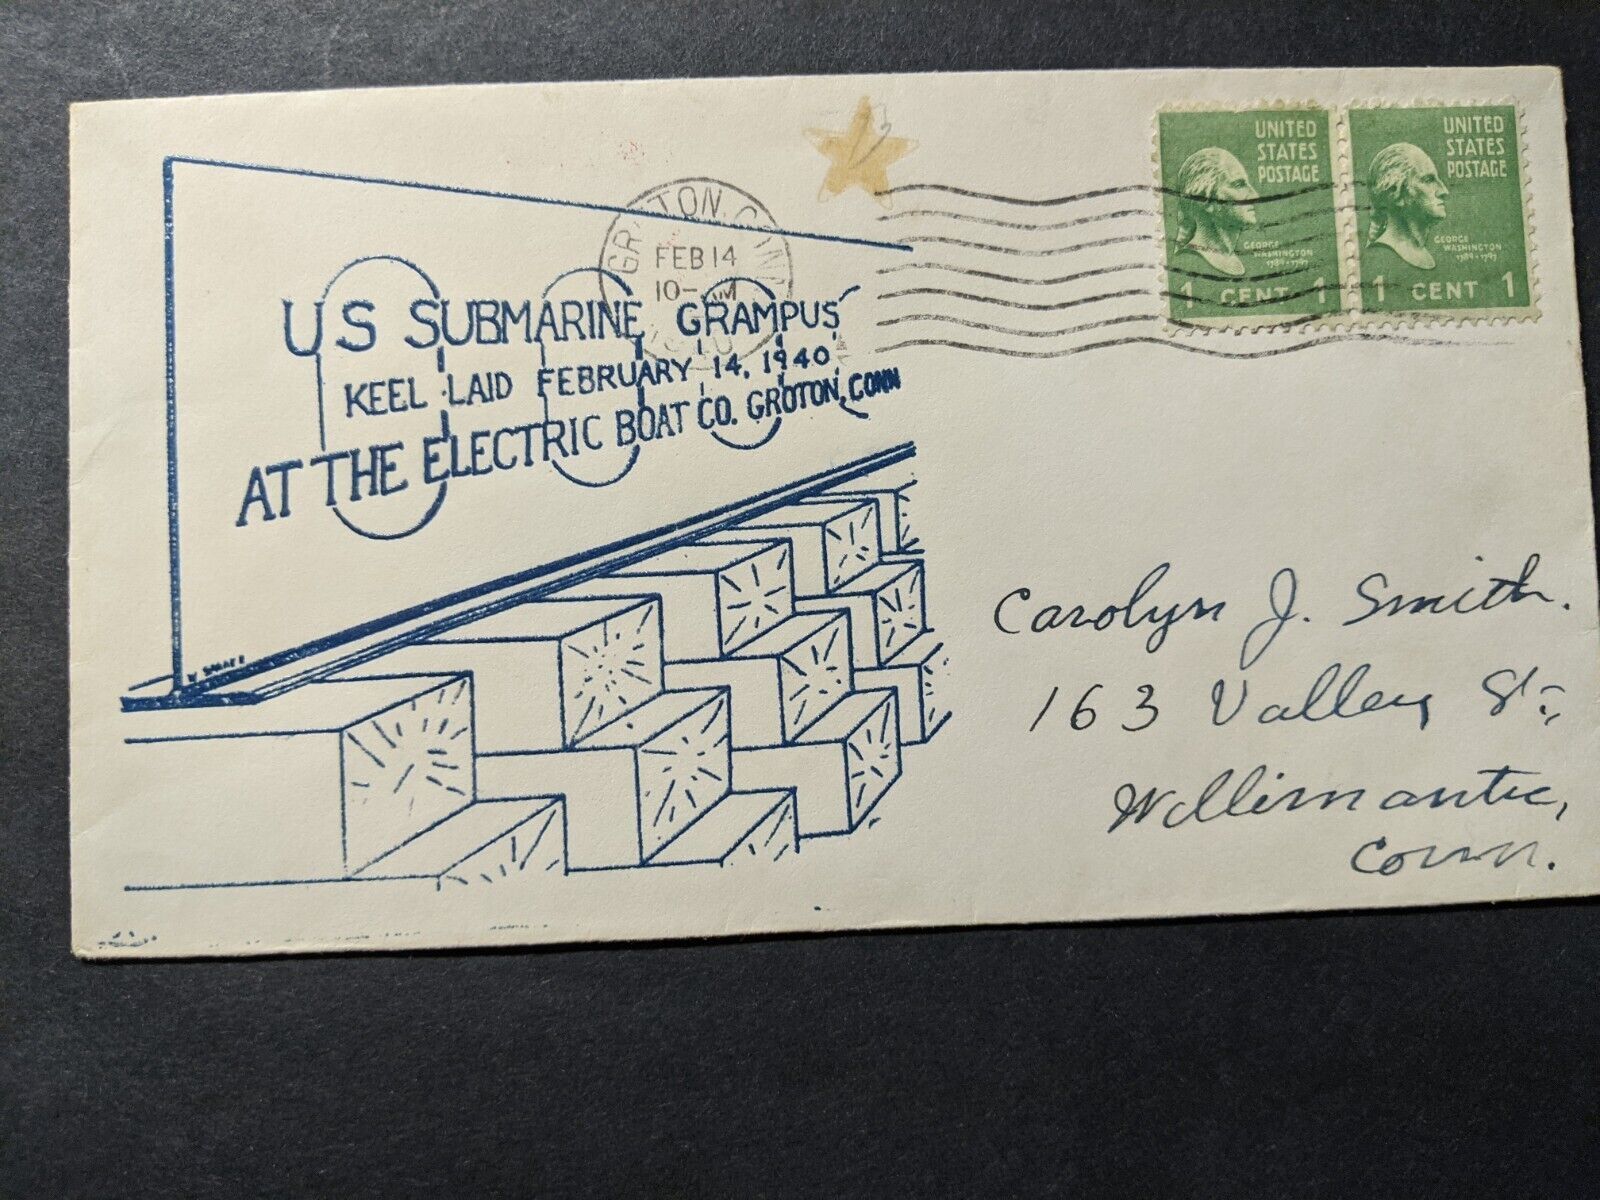 US SUBMARINE GRAMPUS
KEEL LAID FEBRUARY 14, 1940
AT THE ELECTRIC BOAT CO. GROTON, CONN
GROTON, CONN
FEB 14
10-AM
1940
UNITED
STATES
POSTAGE
GEORGE
WASHINGTON
1789-1797
1 CENT 1
UNITED
STATES
POSTAGE
GEORGE
WASHINGTON
1789-1797
1 CENT 1
Carolyn J. Smith.
163 Valley St.,
Willimantic,
Conn.